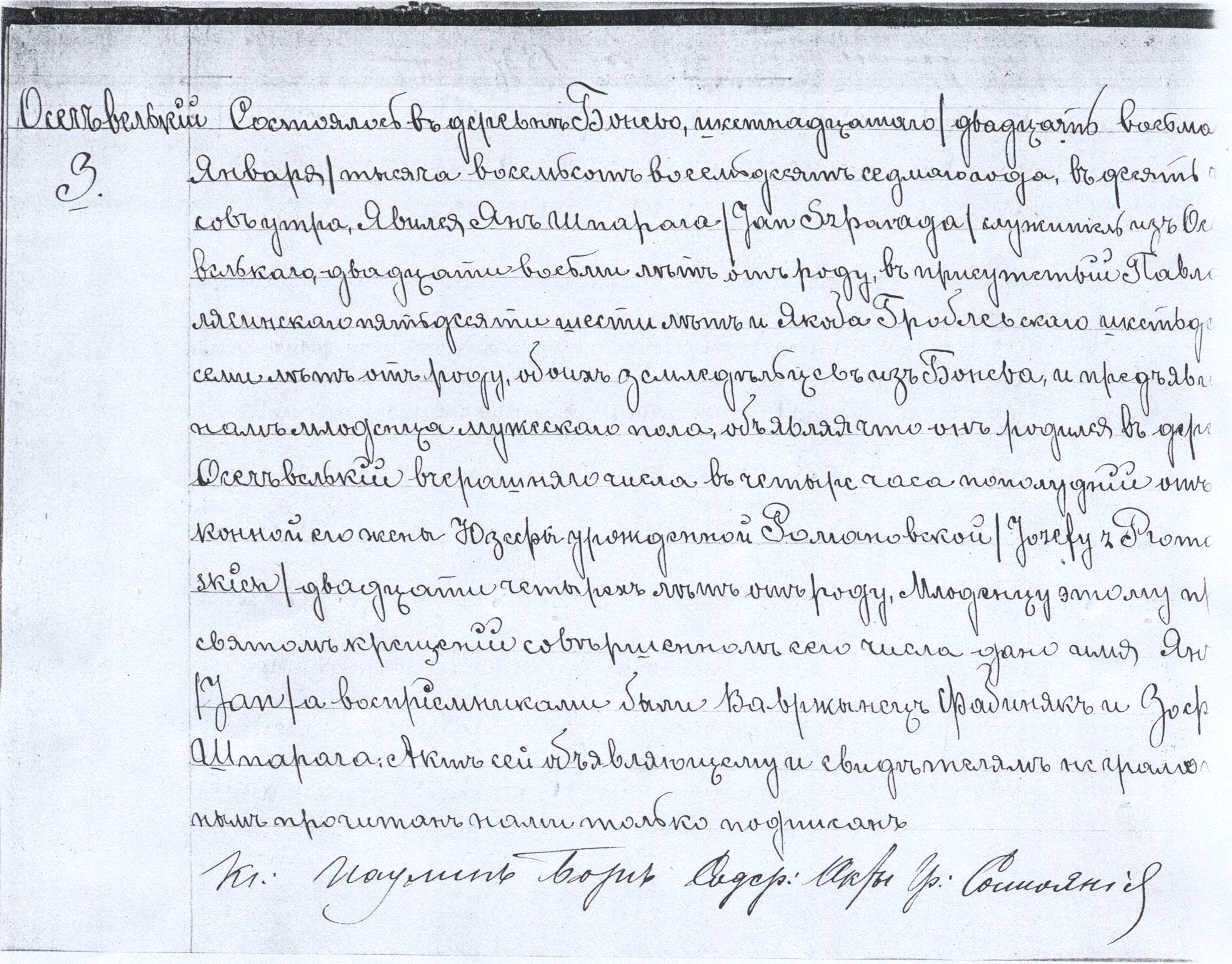 Осечъвелькій Состоялось въ деревнѣ Бонево, шестнадцатаго /двадцать восьма
3. Января/ тысяча восемьсотъ восемьдесятъ седмаго года, въ десять ч
совъ утра, Явился Янъ Шпарага /Jan Szparaga/ служитель изъ Ос
велькаго, двадцати восьми лѣтъ отъ роду, въ присутствіи Павла
лясинскаго пятьдесяти шести лѣтъ и Якоба Гроблевскаго шестьде
семи лѣтъ отъ роду, обоихъ земледѣльцевъ изъ Бонева, и предъяви
намъ младенца мужескаго пола, объявляя что онъ родился въ дере
Осечъвелькій вчерашняго числа въ четыре часа пополудни отъ
конной его жены Юзефы урожденной Романовской /Jozefy z Roma
skich/ двадцати четырехъ лѣтъ отъ роду, Младенцу этому пр
святомъ крещеніи совѣршенномъ сего числа дано имя Ян
/Jan/ а воспріемниками были Вавржынецъ Фабинякъ и Зоф
Шпарага. Актъ сей объявляющему и свидѣтелямъ неграмот
нымъ прочитанъ нами только подписанъ
Кс: Паулинъ Борнъ Содер: Акты Гр: Состоянія